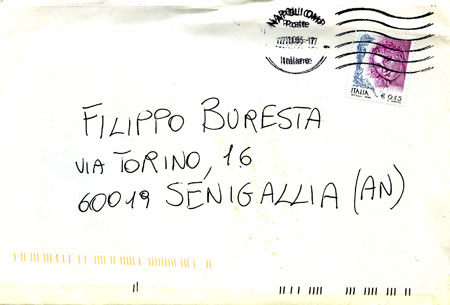 NAPOLI CMP
Poste
Italiane
ITALIA
€ 0,45
FILIPPO BURESTA
VIA TORINO, 16
60019 SENIGALLIA (AN)